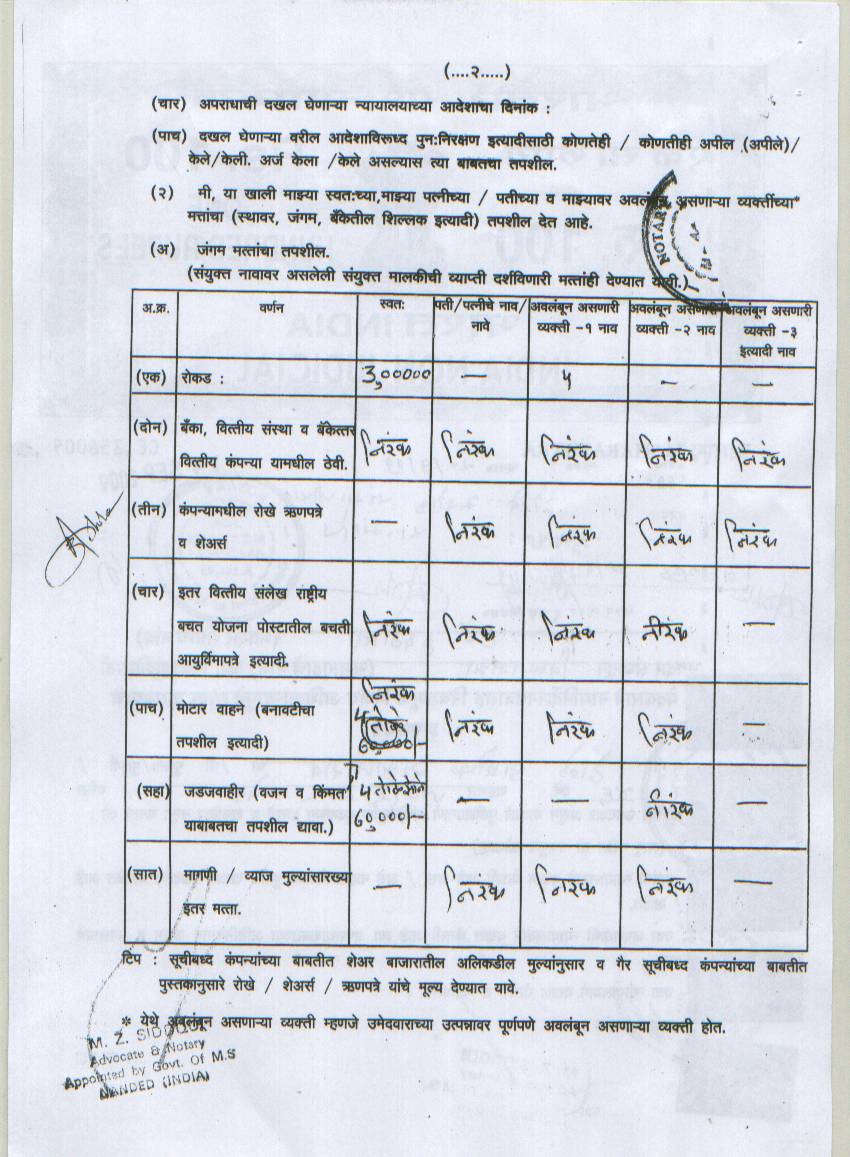 (....२.....)
(चार) अपराधाची दखल घेणाऱ्या न्यायालयाच्या आदेशाचा दिनांक :
(पाच) दखल घेणाऱ्या वरील आदेशाविरूध्द पुन:निरक्षण इत्यादीसाठी कोणतेही / कोणतीही अपील (अपीले)/
केले/केली. अर्ज केला /केले असल्यास त्या बाबतचा तपशील.
(२) मी, या खाली माझ्या स्वत:च्या,माझ्या पत्नीच्या / पतीच्या व माझ्यावर अवलंबून असणाऱ्या व्यक्तींच्या*
मत्तांचा (स्थावर, जंगम, बँकेतील शिल्लक इत्यादी) तपशील देत आहे.
NOTARY
(अ) जंगम मत्तांचा तपशील.
(संयुक्त नावावर असलेली संयुक्त मालकीची व्याप्ती दर्शविणारी मत्तांही देण्यात यावी.)
अ.क्र. वर्णन स्वत: पती/पत्नीचे नाव/ अवलंबून असणारी अवलंबून असणारी अवलंबून असणारी
नावे व्यक्ती -१ नाव व्यक्ती -२ नाव व्यक्ती -३
इत्यादी नाव
(एक) रोकड : 3,00000 — ५ — —
(दोन) बँका, वित्तीय संस्था व बँकेत्तर
वित्तीय कंपन्या यामधील ठेवी. निरंक निरंक निरंक निरंक निरंक
(तीन) कंपन्यामधील रोखे ऋणपत्रे
व शेअर्स — निरंक निरंक निरंक निरंक
(चार) इतर वित्तीय संलेख राष्ट्रीय
बचत योजना पोस्टातील बचती निरंक निरंक निरंक नीरंक —
आयुर्विमापत्रे इत्यादी.
(पाच) मोटार वाहने (बनावटीचा निरंक निरंक निरंक निरंक —
तपशील इत्यादी)
(सहा) जडजवाहीर (वजन व किंमत ४ तोळे सोने — — नीरंक —
याबाबतचा तपशील द्यावा.) 60,000/—
(सात) मागणी / व्याज मुल्यांसारख्या — निरंक निरंक निरंक —
इतर मत्ता.
टिप : सूचीबध्द कंपन्यांच्या बाबतीत शेअर बाजारातील अलिकडील मुल्यांनुसार व गैर सूचीबध्द कंपन्यांच्या बाबतीत
पुस्तकानुसारे रोखे / शेअर्स / ऋणपत्रे यांचे मूल्य देण्यात यावे.
* येथे अवलंबून असणाऱ्या व्यक्ती म्हणजे उमेदवाराच्या उत्पन्नावर पूर्णपणे अवलंबून असणाऱ्या व्यक्ती होत.
M. Z. SIDDIQUI
Advocate & Notary
Appointed by Govt. Of M.S
NANDED (INDIA)